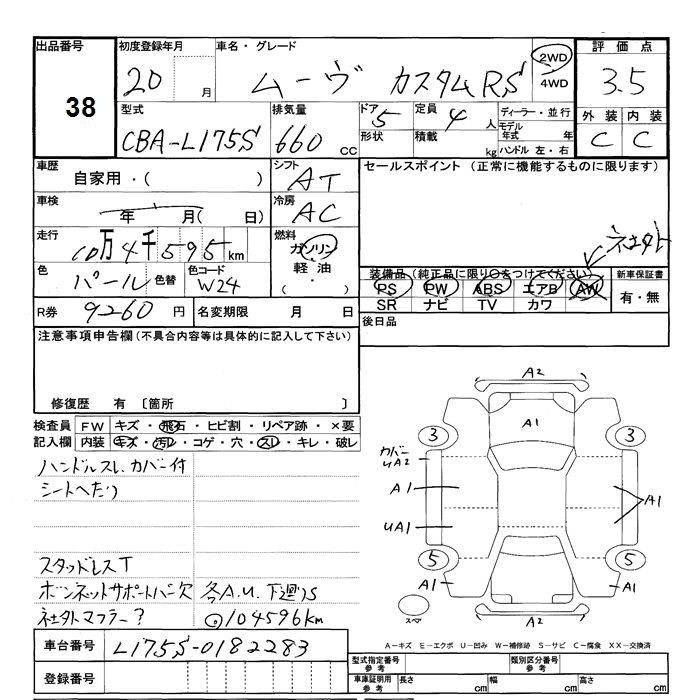 出品番号 初度登録年月 車名・グレード 評価点
38 20 月 ムーヴ カスタムRS 2WD 3.5
4WD
型式 排気量 ドア 5 定員 4 人 ディーラー・並行 外装 内装
CBA-L175S 660 CC 形状 積載 kg モデル年式 年 C C
ハンドル 左・右
車歴 自家用・( ) シフト AT セールスポイント (正常に機能するものに限ります)
車検 年 月( 日) 冷房 AC
走行 10万4千595km 燃料 ガソリン 社外
軽油
・( )
色 パール 色替 色コード W24 装備品 (純正品に限り○をつけてください) 新車保証書
PS PW ABS エアB AW 有・無
SR ナビ TV カワ
R券 9260 円 名変期限 月 日 後日品
注意事項申告欄(不具合内容等は具体的に記入して下さい)
修復歴 有 〔箇所 〕
検査員 FW キズ・飛石・ヒビ割・リペア跡・×要
記入欄 内装 キズ・汚レ・コゲ・穴・スレ・キレ・破レ
ハンドルスレ.カバー付
シートへたり
スタッドレスT
ボンネットサポートバー欠 各A.U.下廻りS
社外マフラー? ◎104596km
A2
A1
3 3
カバー
UA2
A1 A1
UA1
5 5
A1 A1
スペア A2
A-キズ E-エクボ U-凹み W-補修跡 S-サビ C-腐食 XX-交換済
車台番号 L175S-0182283
登録番号
型式指定番号 参考 類別区分番号 参考
車庫証明用 参考 長さ cm 幅 cm 高さ cm